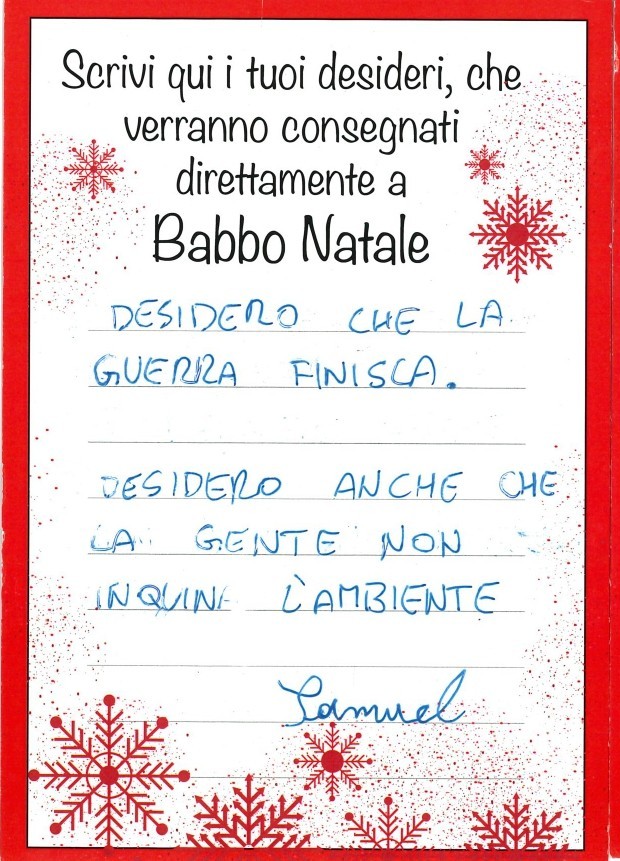 Scrivi qui i tuoi desideri, che
verranno consegnati
direttamente a
Babbo Natale
DESIDERO CHE LA
GUERRA FINISCA.
DESIDERO ANCHE CHE
LA GENTE NON
INQUINI L'AMBIENTE
Samuel